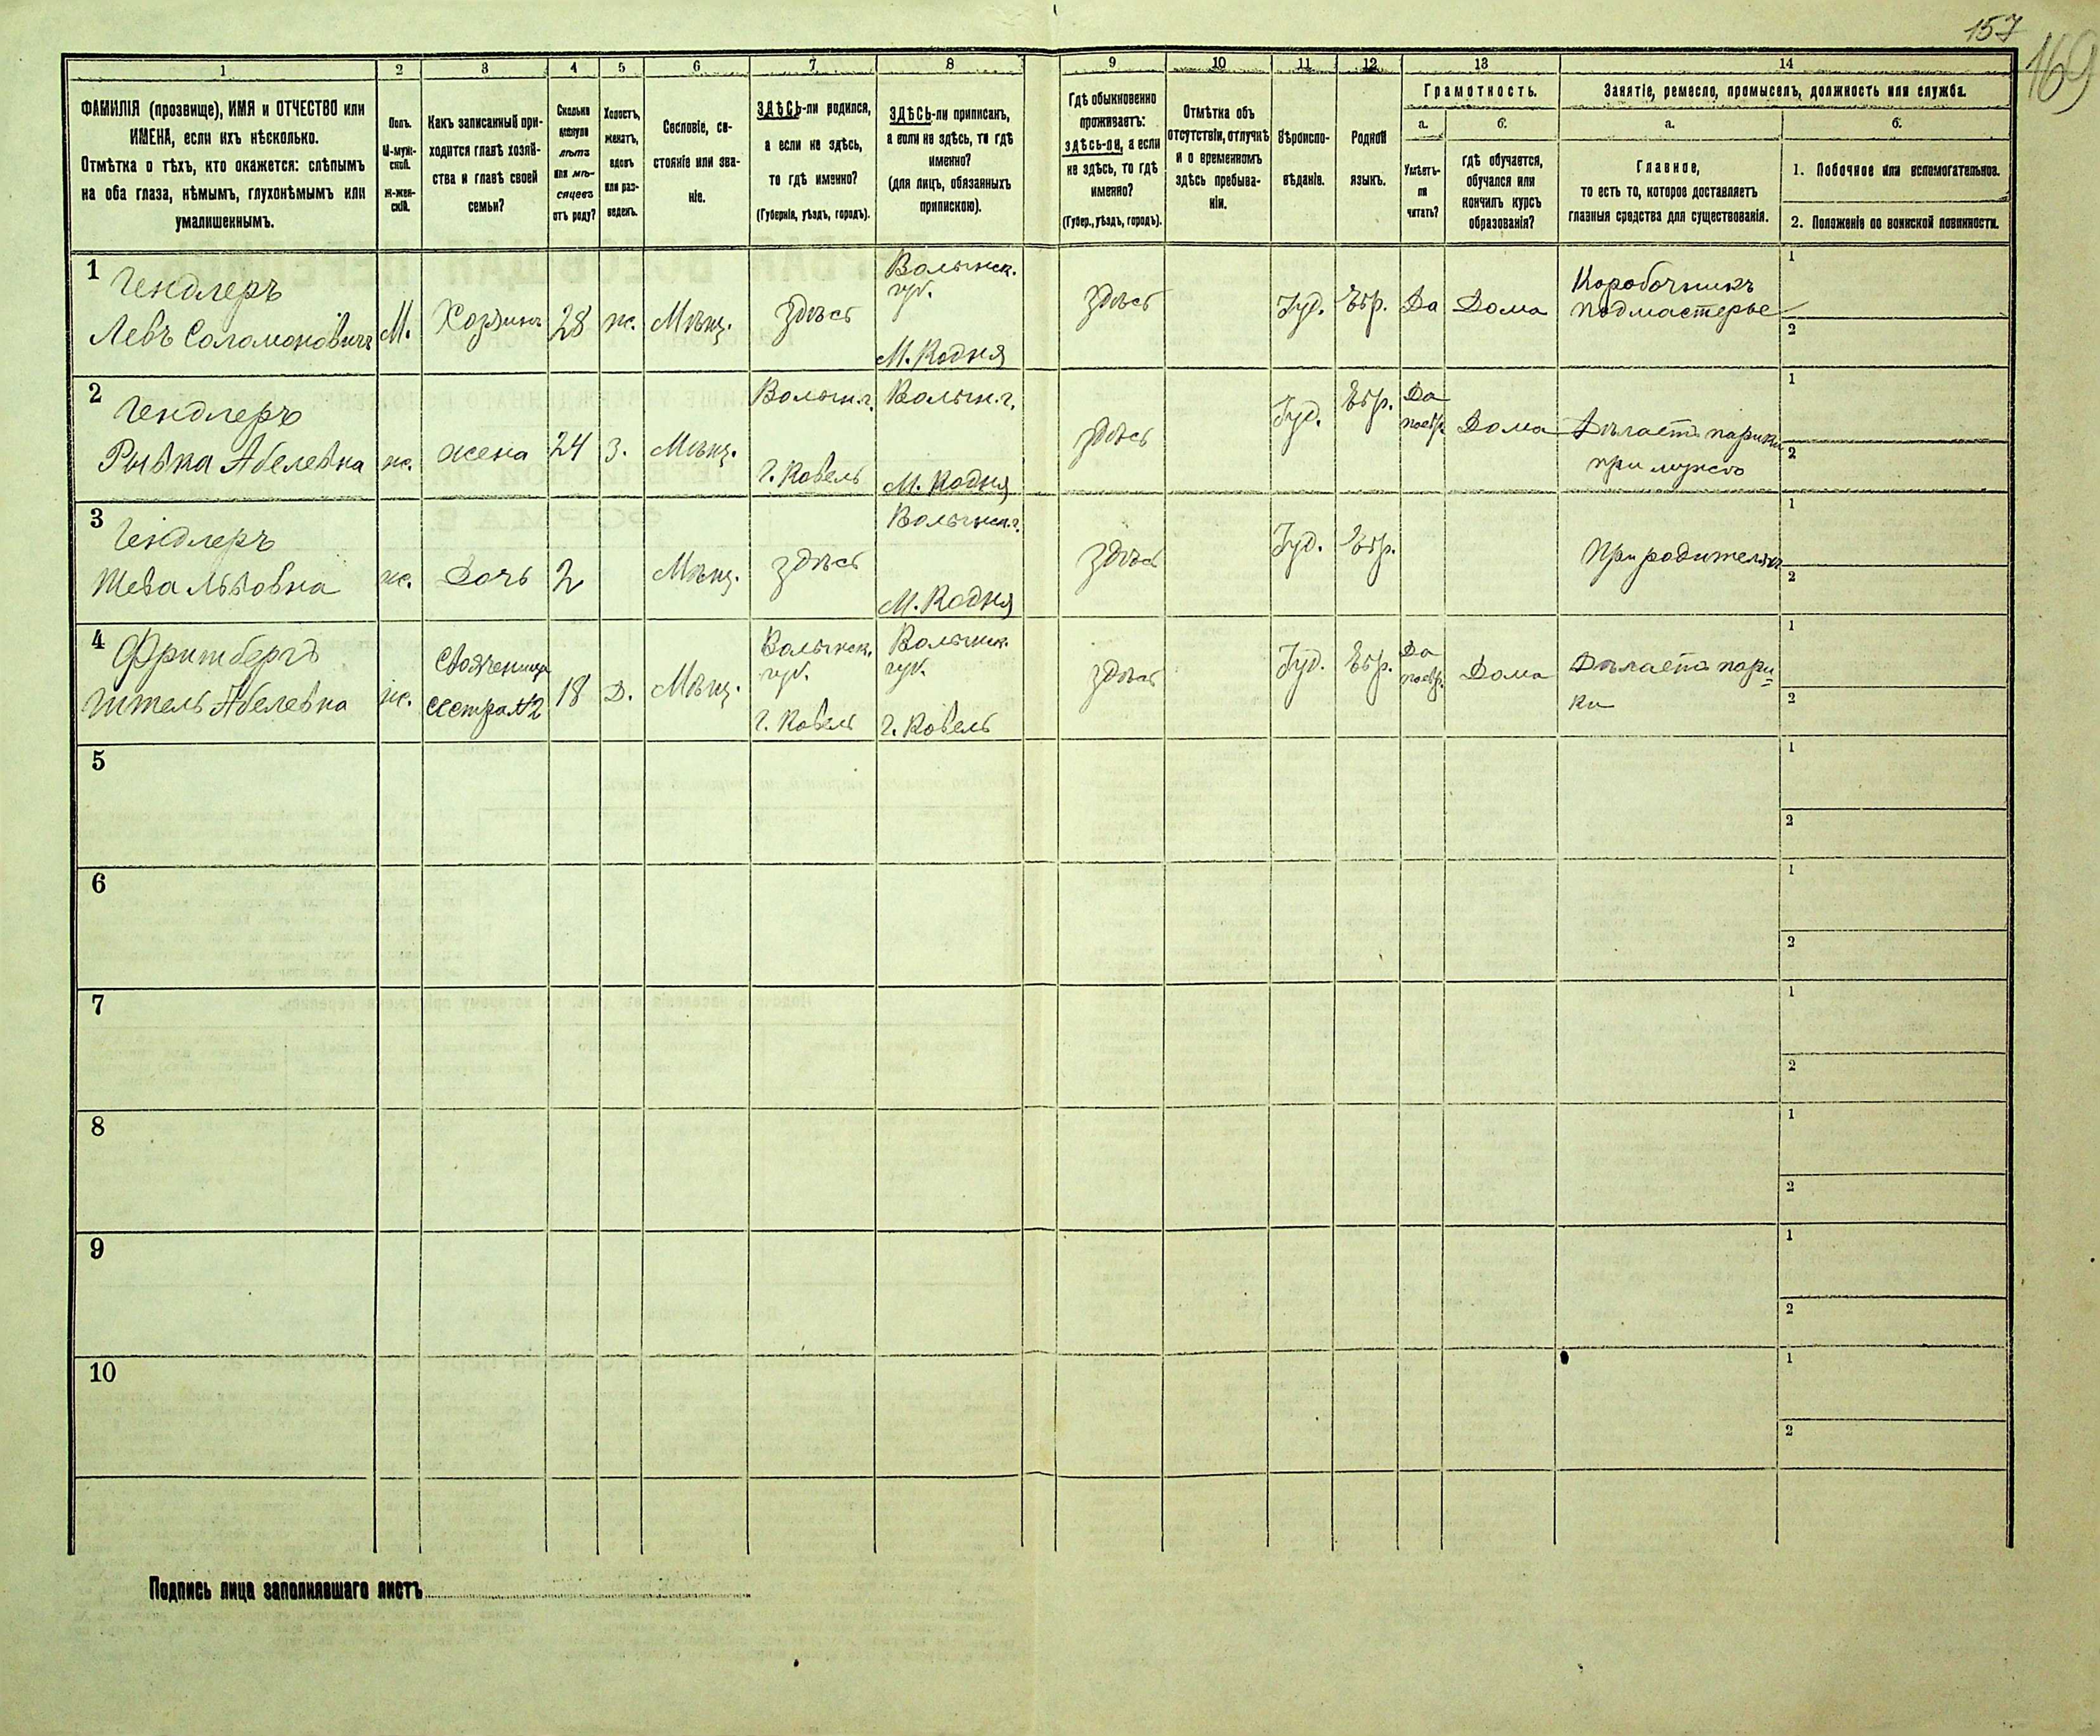 157
169
1 2 3 4 5 6 7 8 9 10 11 12 13 14
ФАМИЛІЯ (прозвище), ИМЯ и ОТЧЕСТВО или
ИМЕНА, если ихъ нѣсколько.
Отмѣтка о тѣхъ, кто окажется: слѣпымъ
на оба глаза, нѣмымъ, глухонѣмымъ или
умалишеннымъ.
Полъ.
М-муж-
ской.
Ж-жен-
скій.
Какъ записанный при-
ходится главѣ хозяй-
ства и главѣ своей
семьи?
Сколько
минуло
лѣтъ
или мѣ-
сяцевъ
отъ роду?
Холостъ,
женатъ,
вдовъ
или раз-
веденъ.
Сословіе, со-
стояніе или зва-
ніе.
ЗДѢСЬ-ли родился,
а если не здѣсь,
то гдѣ именно?
(Губернія, уѣздъ, городъ).
ЗДѢСЬ-ли приписанъ,
а если не здѣсь, то гдѣ
именно?
(для лицъ, обязанныхъ
припискою).
Гдѣ обыкновенно
проживаетъ:
здѣсь-ли, а если
не здѣсь, то гдѣ
именно?
(Губер., уѣздъ, городъ).
Отмѣтка объ
отсутствіи, отлучкѣ
и о временномъ
здѣсь пребыва-
ніи.
Вѣроиспо-
вѣданіе.
Родной
языкъ.
Грамотность.
а.
Умѣетъ-
ли
читать?
б.
гдѣ обучается,
обучался или
кончилъ курсъ
образованія?
Занятіе, ремесло, промыселъ, должность или служба.
а.
Главное,
то есть то, которое доставляетъ
главныя средства для существованія.
б.
1. Побочное или вспомогательное.
2. Положеніе по воинской повинности.
1
Гендлеръ
Левъ Соломоновичъ
М.
Хозяинъ
28
ж.
Мѣщ.
здѣсь
Волынск.
губ.
М. Кодня
здѣсь
Іуд.
Евр.
Да
Дома
Коробочникъ
подмастерье
1
2
2
Гендлеръ
Рывка Абелевна
ж.
жена
24
З.
Мѣщ.
Волын. г.
г. Ковель
Волын. г.
М. Кодня
здѣсь
Іуд.
Евр.
Да
поевр.
Дома
Дѣлаетъ парики
при мужѣ
1
2
3
Гендлеръ
Шева Львовна
ж.
Дочь
2
Мѣщ.
здѣсь
Волынск. г.
М. Кодня
здѣсь
Іуд.
Евр.
При родителяхъ
1
2
4
Гитель Абелевна
ж.
Свояченица
сестра №2
18
Д.
Мѣщ.
Волынск.
губ.
г. Ковель
Волынск.
губ.
г. Ковель
здѣсь
Іуд.
Евр.
Да
поевр.
Дома
Дѣлаетъ пари=
ки
1
2
5
1
2
6
1
2
7
1
2
8
1
2
9
1
2
10
1
2
Подпись лица заполнявшаго листъ